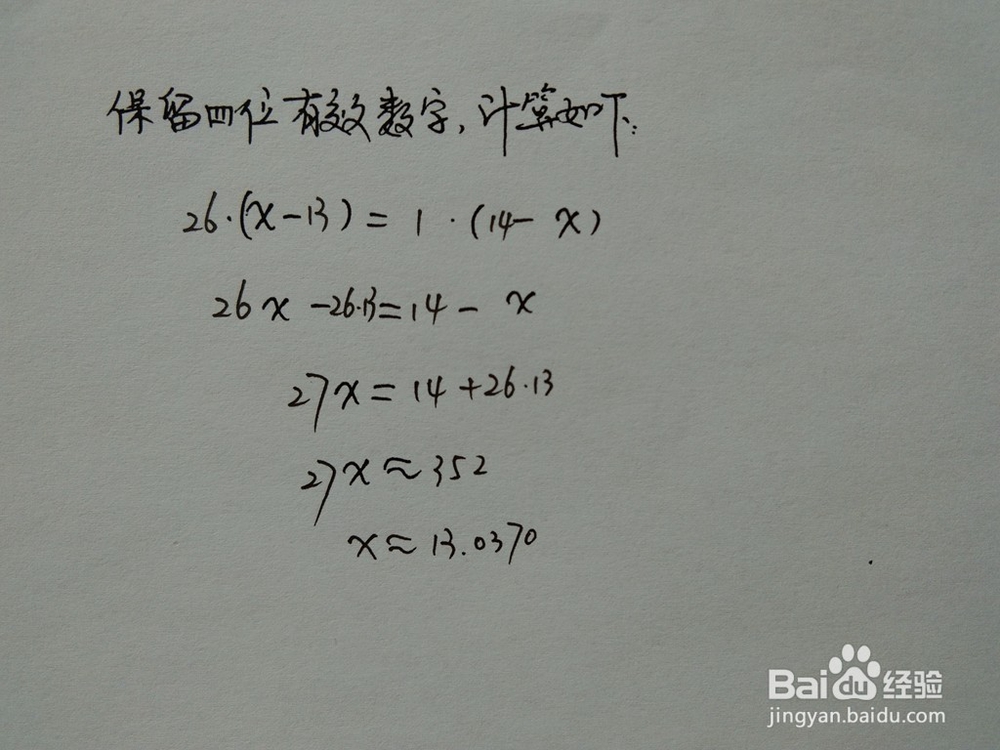 保留四位有效数字,计算如下:
26·(x-13)=1·(14-x)
26x-26·13=14-x
27x=14+26·13
27x≈352
x≈13.0370
Baidu经验
jingyan.baidu.com